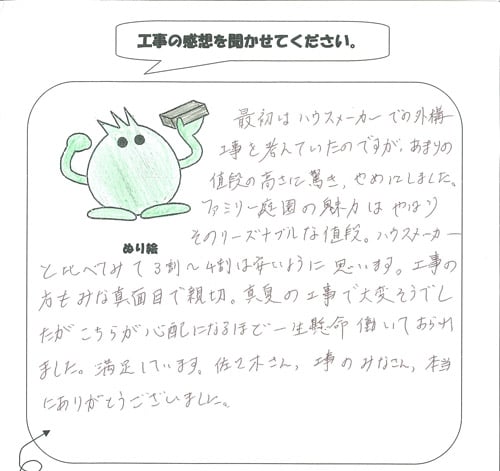 工事の感想を聞かせてください。
最初はハウスメーカーでの外構
工事を考えていたのですが、あまりの
値段の高さに驚き、やめにしました。
ファミリー庭園の魅力はやはり
そのリーズナブルな値段。ハウスメーカー
ぬり絵
と比べてみて3割〜4割は安いように思います。工事の
方もみな真面目で親切。真夏の工事で大変そうでし
たがこちらが心配になるほど一生懸命働いておられ
ました。満足しています。佐々木さん、工事のみなさん、本当
にありがとうございました。